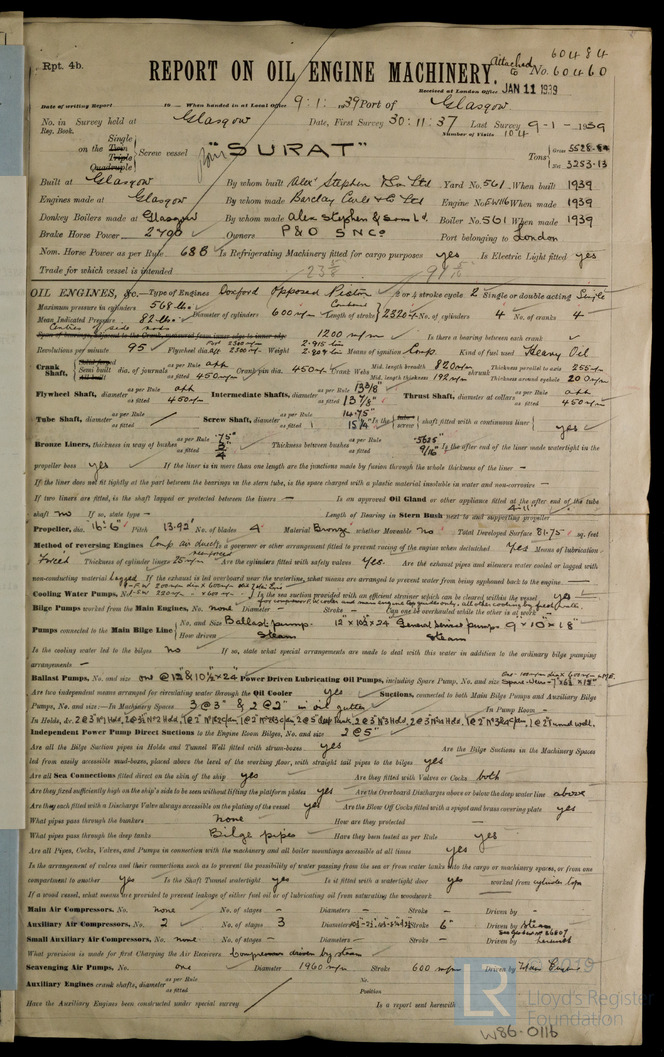 60484
Rpt. 4b.
REPORT ON OIL ENGINE MACHINERY.
Attached to No. 60460
Received at London Office JAN 11 1939
Date of writing Report 19 When handed in at Local Office 9:1:1939 Port of Glasgow
No. in Reg. Book. Survey held at Glasgow Date, First Survey 30:11:37 Last Survey 9-1-1939
Number of Visits 104
on the Single Twin Triple Quadruple Screw vessel "SURAT" Tons Gross 5528.84
Net 3253.13
Built at Glasgow By whom built Alex Stephen & Sons Ltd Yard No. 561 When built 1939
Engines made at Glasgow By whom made Barclay Curle & Co Ltd Engine No. When made 1939
Donkey Boilers made at Glasgow By whom made Alex Stephen & Sons Ld. Boiler No. 561 When made 1939
Brake Horse Power Owners P & O S N Co Port belonging to London
Nom. Horse Power as per Rule 688 Is Refrigerating Machinery fitted for cargo purposes yes Is Electric Light fitted yes
Trade for which vessel is intended 23 5/8 91 5/16
OIL ENGINES, &c.—Type of Engines Doxford Opposed Piston 2 or 4 stroke cycle 2 Single or double acting Single
Maximum pressure in cylinders 568 lb. Diameter of cylinders 600 m/m Length of stroke Combined 2320 m/m No. of cylinders 4 No. of cranks 4
Mean Indicated Pressure 82 lb.
Centres of side rods
Span of bearings, adjacent to the Crank, measured from inner edge to inner edge 1200 m/m Is there a bearing between each crank
Revolutions per minute 95 Flywheel dia. Weight Means of ignition Comp. Kind of fuel used Heavy Oil
Crank Shaft, Solid forged Semi built All built dia. of journals as per Rule app as fitted 450 m/m Crank pin dia. 450 m/m Crank Webs Mid. length breadth 820 m/m Mid. length thickness 192 m/m shrunk Thickness parallel to axis 255 m/m Thickness around eyehole 200 m/m
Flywheel Shaft, diameter as per Rule app as fitted 450 m/m Intermediate Shafts, diameter as per Rule 13 3/8" as fitted 13 7/8" Thrust Shaft, diameter at collars as per Rule app as fitted 450 m/m
Tube Shaft, diameter as per Rule as fitted Screw Shaft, diameter as per Rule 14.75 as fitted 15 1/4" Is the tube screw shaft fitted with a continuous liner yes
Bronze Liners, thickness in way of bushes as per Rule .75" as fitted Thickness between bushes as per Rule .5625" as fitted 9/16" Is the after end of the liner made watertight in the
propeller boss yes If the liner is in more than one length are the junctions made by fusion through the whole thickness of the liner —
If the liner does not fit tightly at the part between the bearings in the stern tube, is the space charged with a plastic material insoluble in water and non-corrosive —
If two liners are fitted, is the shaft lapped or protected between the liners — Is an approved Oil Gland or other appliance fitted at the after end of the tube
shaft no If so, state type — Length of Bearing in Stern Bush next to and supporting propeller 4'-11"
Propeller, dia. 16'-6" Pitch 13.92' No. of blades 4 Material Bronze whether Moveable no Total Developed Surface 81.75 sq. feet
Method of reversing Engines Comp. air direct Is a governor or other arrangement fitted to prevent racing of the engine when declutched yes Means of lubrication
Forced Thickness of cylinder liners 25 m/m Are the cylinders fitted with safety valves yes Are the exhaust pipes and silencers water cooled or lagged with
non-conducting material lagged If the exhaust is led overboard near the waterline, what means are arranged to prevent water being syphoned back to the engine —
Cooling Water Pumps, No. Is the sea suction provided with an efficient strainer which can be cleared within the vessel yes
Bilge Pumps worked from the Main Engines, No. none Diameter — Stroke — Can one be overhauled while the other is at work
Pumps connected to the Main Bilge Line No. and Size Ballast pump. 12" x 10½" x 24" General Service pump 9" x 10" x 18"
How driven Steam Steam
Is the cooling water led to the bilges no If so, state what special arrangements are made to deal with this water in addition to the ordinary bilge pumping
arrangements —
Ballast Pumps, No. and size one @ 12" & 10½" x 24" Power Driven Lubricating Oil Pumps, including Spare Pump, No. and size
Are two independent means arranged for circulating water through the Oil Cooler yes Suctions, connected to both Main Bilge Pumps and Auxiliary Bilge
Pumps, No. and size:—In Machinery Spaces 3 @ 3" & 2 @ 2" in oil gutters In Pump Room —
In Holds, &c.
Independent Power Pump Direct Suctions to the Engine Room Bilges, No. and size 2 @ 5"
Are all the Bilge Suction pipes in Holds and Tunnel Well fitted with strum-boxes yes Are the Bilge Suctions in the Machinery Spaces
led from easily accessible mud-boxes, placed above the level of the working floor, with straight tail pipes to the bilges yes
Are all Sea Connections fitted direct on the skin of the ship yes Are they fitted with Valves or Cocks both
Are they fixed sufficiently high on the ship's side to be seen without lifting the platform plates yes Are the Overboard Discharges above or below the deep water line above
Are they each fitted with a Discharge Valve always accessible on the plating of the vessel yes Are the Blow Off Cocks fitted with a spigot and brass covering plate yes
What pipes pass through the bunkers none How are they protected —
What pipes pass through the deep tanks Bilge pipes Have they been tested as per Rule yes
Are all Pipes, Cocks, Valves, and Pumps in connection with the machinery and all boiler mountings accessible at all times yes
Is the arrangement of valves and their connections such as to prevent the possibility of water passing from the sea or from water tanks into the cargo or machinery spaces, or from one
compartment to another yes Is the Shaft Tunnel watertight yes Is it fitted with a watertight door yes worked from cylinder tops
If a wood vessel, what means are provided to prevent leakage of either fuel oil or of lubricating oil from saturating the woodwork
Main Air Compressors, No. none No. of stages — Diameters — Stroke — Driven by —
Auxiliary Air Compressors, No. 2 No. of stages 3 Diameters Stroke 6" Driven by Steam
Small Auxiliary Air Compressors, No. none No. of stages — Diameters — Stroke — Driven by
What provision is made for first Charging the Air Receivers Compressor driven by steam
Scavenging Air Pumps, No. one Diameter 1960 m/m Stroke 600 m/m Driven by Main Engines
Auxiliary Engines crank shafts, diameter as per Rule as fitted No. Position
Have the Auxiliary Engines been constructed under special survey Is a report sent herewith
© 2019
LR
Lloyd's Register
Foundation
W86-0116